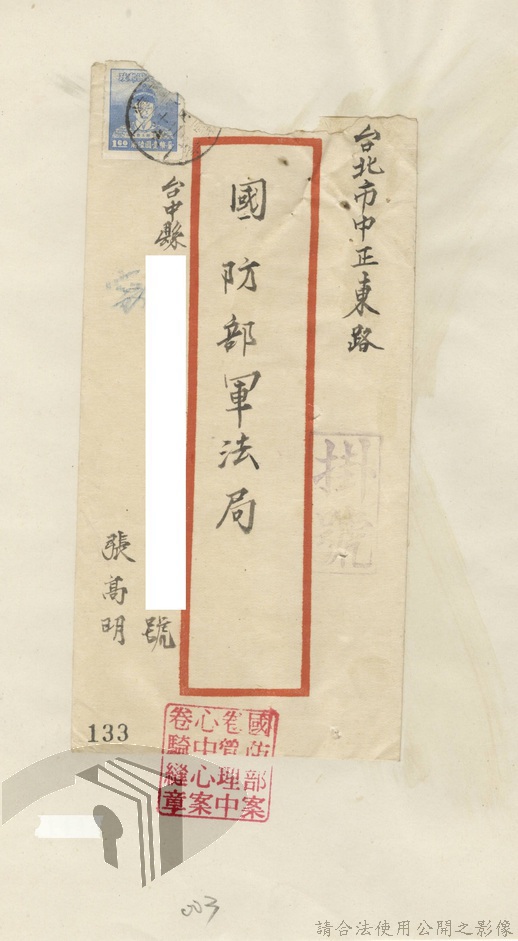 台北市中正東路
掛號
國防部軍法局
台中縣
號
張高明
1.00
133
國防部案
卷管理中
心中心案
卷騎縫章
003
請合法使用公開之影像